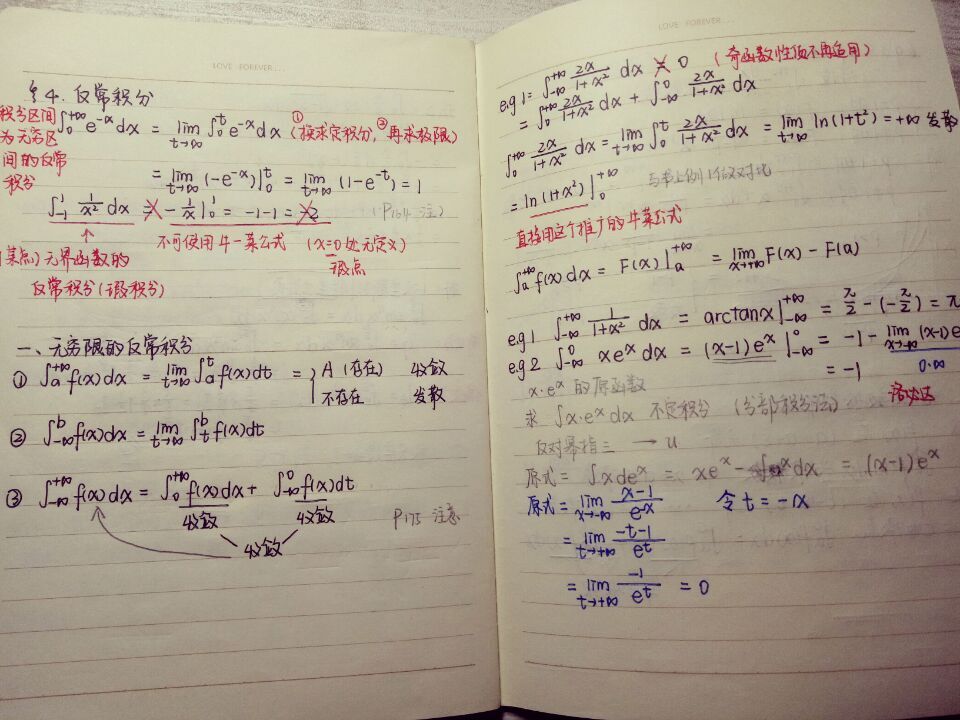 LOVE FOREVER...
§4. 反常积分
积分区间为无穷区间的反常积分
∫₀^{+∞} e^{-x} dx = lim_{t→∞} ∫₀^t e^{-x} dx (①换求定积分, ②再求极限)
= lim_{t→∞} (-e^{-x})|₀^t = lim_{t→∞} (1-e^{-t}) = 1
∫₋₁^1 1/x² dx = -1/x|₀^1 = -1-1 = -2 (P164 注)
↑ 不可使用牛-莱公式 (x=0处无定义)
瑕点
(某点)无界函数的
反常积分(瑕积分)
一、无穷限的反常积分
① ∫ₐ^{+∞} f(x)dx = lim_{t→∞} ∫ₐ^t f(x)dt = { A (存在) 收敛
不存在 发散
② ∫_{-∞}^b f(x)dx = lim_{t→∞} ∫_t^b f(x)dt
③ ∫_{-∞}^{+∞} f(x)dx = ∫₀^{+∞} f(x)dx + ∫_{-∞}^0 f(x)dt
收敛 收敛
收敛
P175 注意
LOVE FOREVER...
e.g 1= ∫_{-∞}^{+∞} 2x/(1+x²) dx ≠ 0 (奇函数性质不再适用)
= ∫₀^{+∞} 2x/(1+x²) dx + ∫_{-∞}^0 2x/(1+x²) dx
∫₀^{+∞} 2x/(1+x²) dx = lim_{t→∞} ∫₀^t 2x/(1+x²) dx = lim_{t→∞} ln(1+t²) = +∞ 发散
= ln(1+x²)|₀^{+∞} 与书上例1做对比
直接用这个推广的牛莱公式
∫ₐ^{+∞} f(x)dx = F(x)|ₐ^{+∞} = lim_{x→+∞} F(x) - F(a)
e.g 1 ∫_{-∞}^{+∞} 1/(1+x²) dx = arctanx|_{-∞}^{+∞} = π/2 - (-π/2) = π
e.g 2 ∫_{-∞}^0 xe^x dx = (x-1)e^x|_{-∞}^0 = -1 - lim_{x→-∞} (x-1)e
= -1 0·∞
x·e^x 的原函数 洛必达
求 ∫x·e^x dx 不定积分 (分部积分法)
反对幂指三 → u
原式 = ∫xde^x = xe^x - ∫e^x dx = (x-1)e^x
原式 = lim_{x→-∞} (x-1)/e^{-x} 令 t = -x
= lim_{t→+∞} (-t-1)/e^t
= lim_{t→+∞} -1/e^t = 0